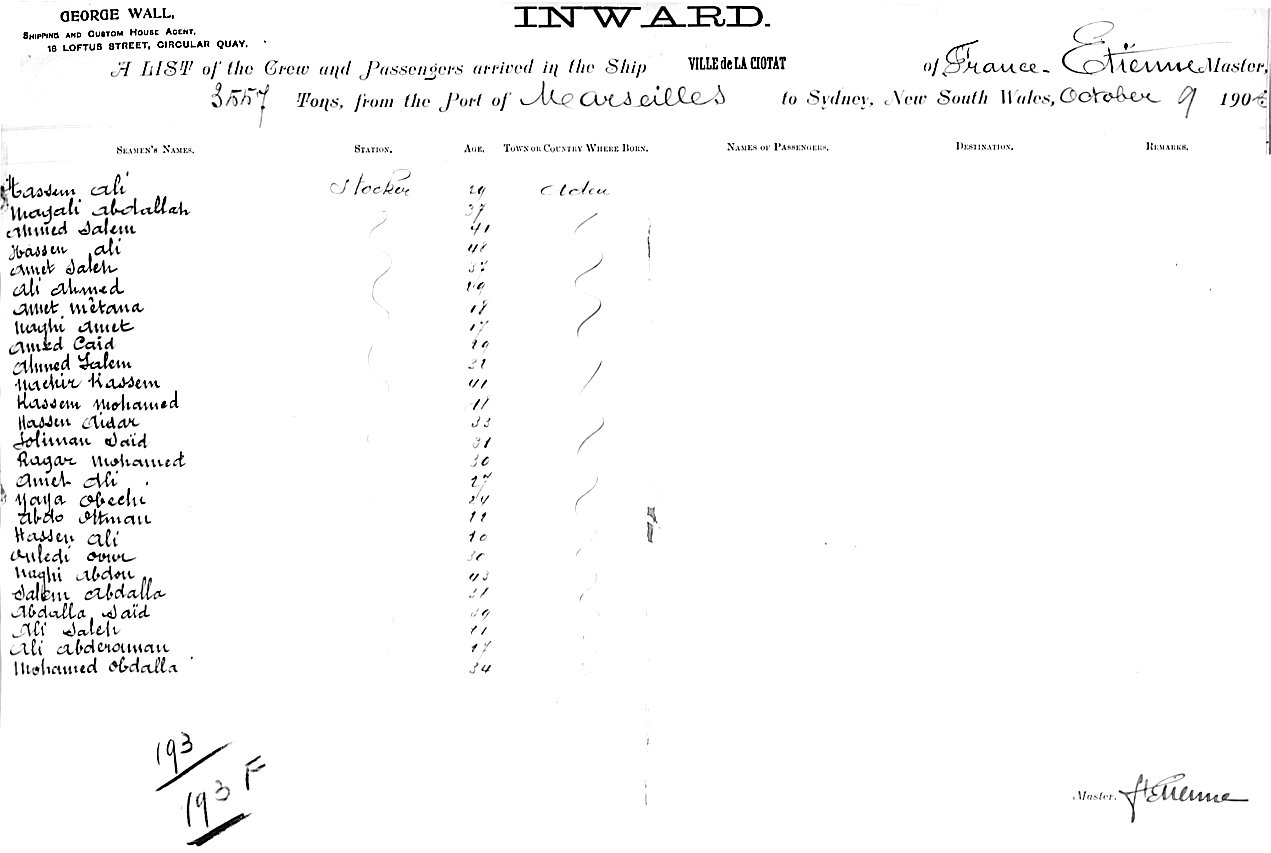 GEORGE WALL,
SHIPPING AND CUSTOM HOUSE AGENT,
18 LOFTUS STREET, CIRCULAR QUAY.
INWARD.
A LIST of the Crew and Passengers arrived in the Ship VILLE de LA CIOTAT of France - Etienne Master,
3557 Tons, from the Port of Marseilles to Sydney, New South Wales, October 9 190
SEAMEN'S NAMES. STATION. AGE. TOWN OR COUNTRY WHERE BORN. NAMES OF PASSENGERS. DESTINATION. REMARKS.
Hassem Ali Stocker 29 Aden
Abdallah 37
Ahmed Salem 41
Hassen Ali 48
Amet Saleh 37
Ali Ahmed 29
Amet Metana 18
Naghi Amet 17
Amed Caid 29
Ahmed Salem 21
Kassem 41
Kassem Mohamed 41
Hassen Aidar 33
Soliman Saïd 31
Ragar Mohamed 30
Amet Ali 27
Yaya 24
Abdo Ottman
Hassen Ali
30
Naghi Abdou 43
Salem Abdalla 21
Abdalla Saïd 39
Ali Saleh
Ali Abderouman
Mohamed Obdalla 34
193
193 F
Master. H Etienne